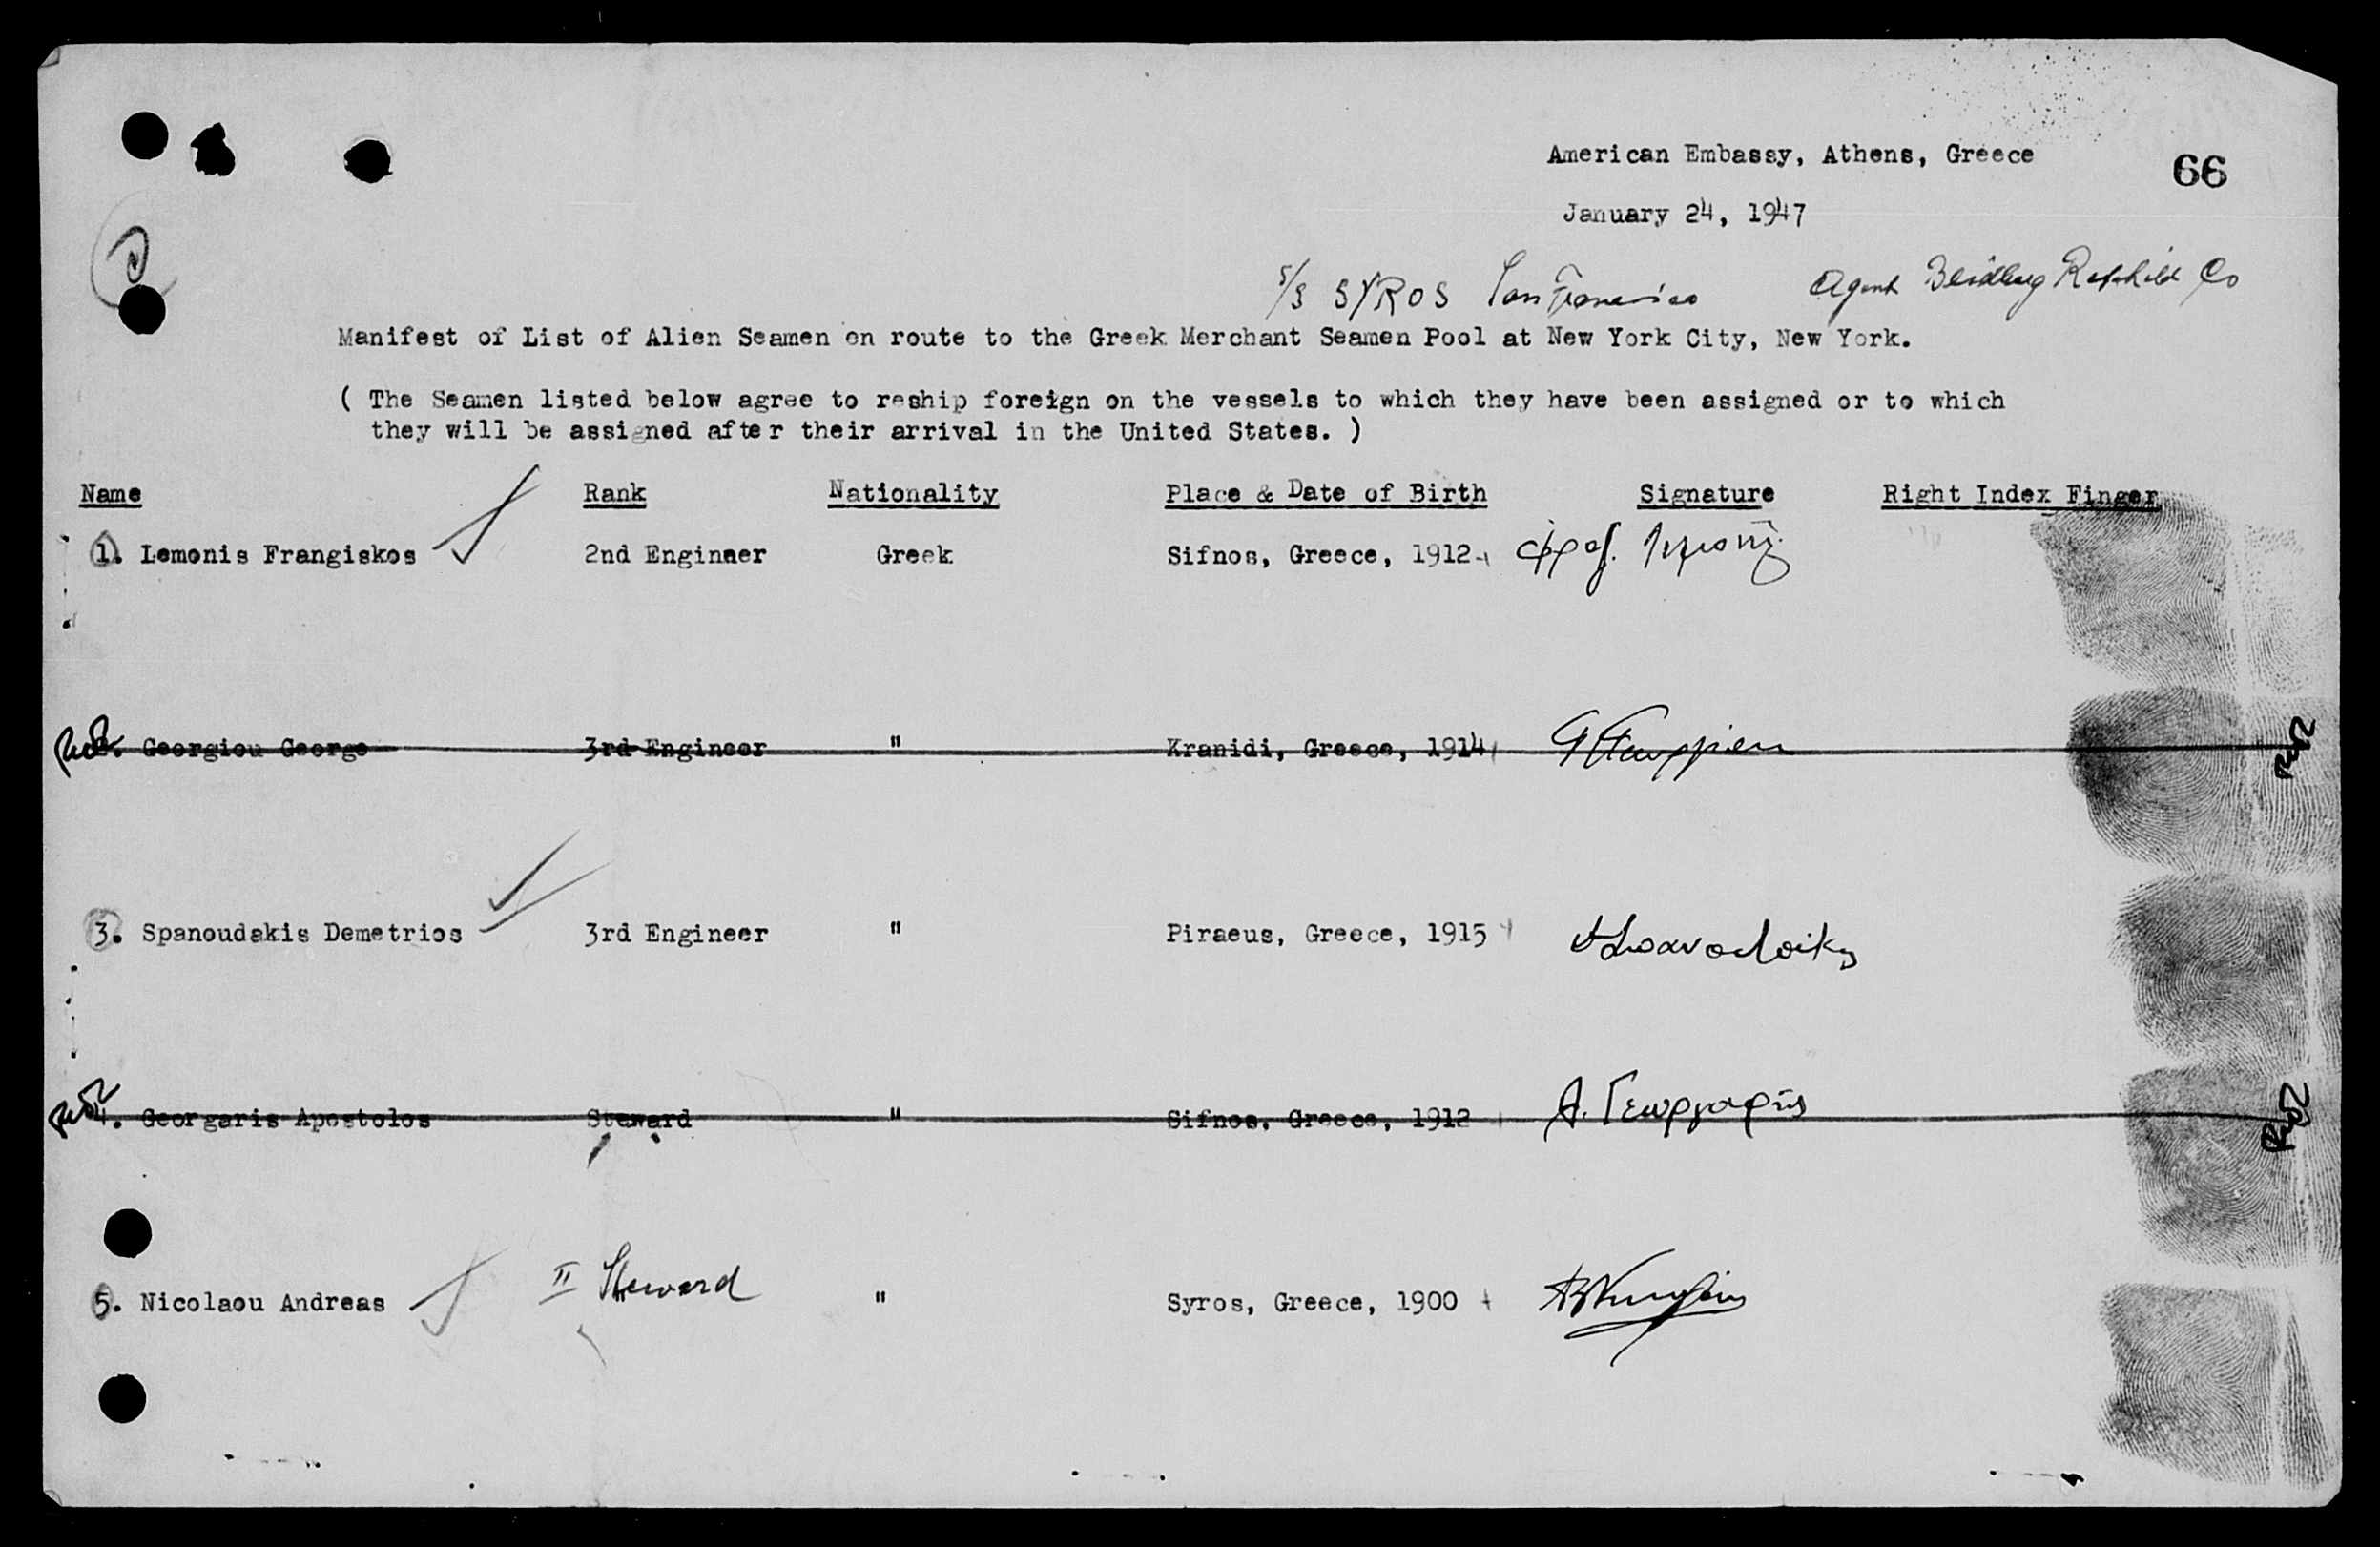 American Embassy, Athens, Greece
66
January 24, 1947
S/S SYROS San Francisco Agent Co
Manifest of List of Alien Seamen en route to the Greek Merchant Seamen Pool at New York City, New York.
( The Seamen listed below agree to reship foreign on the vessels to which they have been assigned or to which
they will be assigned after their arrival in the United States. )
Name Rank Nationality Place & Date of Birth Signature Right Index Finger
1. Lemonis Frangiskos 2nd Engineer Greek Sifnos, Greece, 1912
2. Georgiou George 3rd Engineer " Kranidi, Greece, 1914
3. Spanoudakis Demetrios 3rd Engineer " Piraeus, Greece, 1915
4. Georgaris Apostolos Steward " Sifnos, Greece, 1912 Α. Γεωργαρης
5. Nicolaou Andreas II Steward " Syros, Greece, 1900